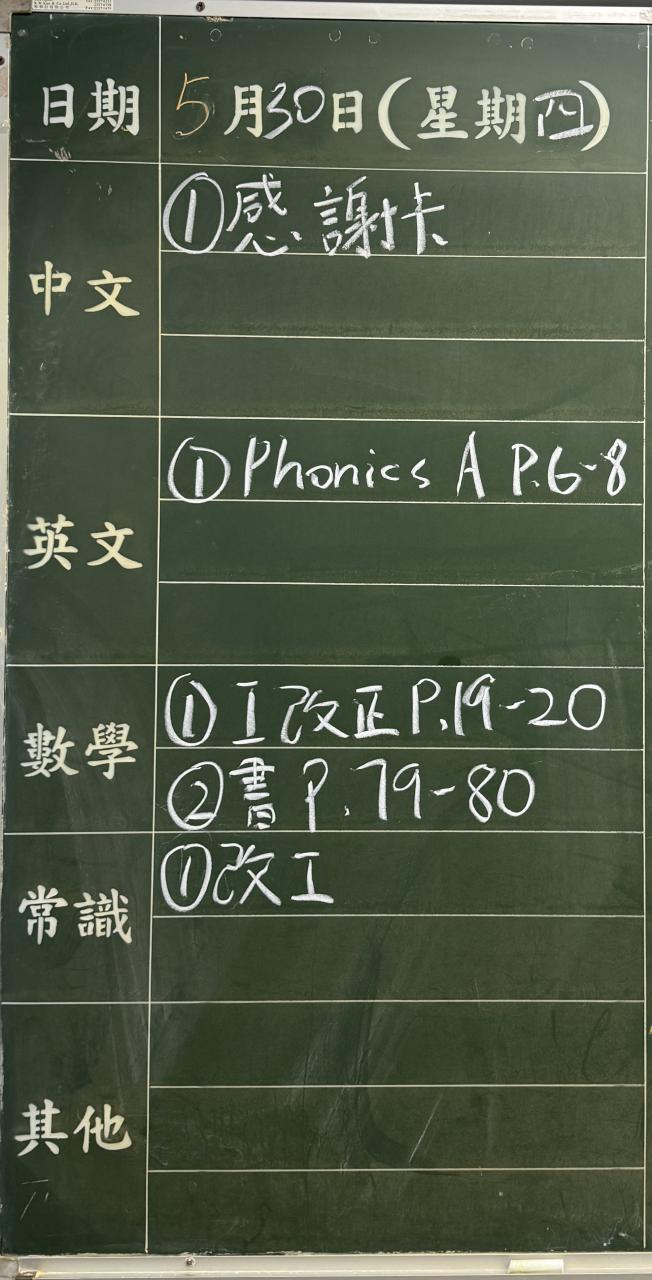 日期 5月30日(星期四)
中文 ①感謝卡
英文 ①Phonics A P.6-8
數學 ①工改正P.19-20
②書P.79-80
常識 ①改工
其他